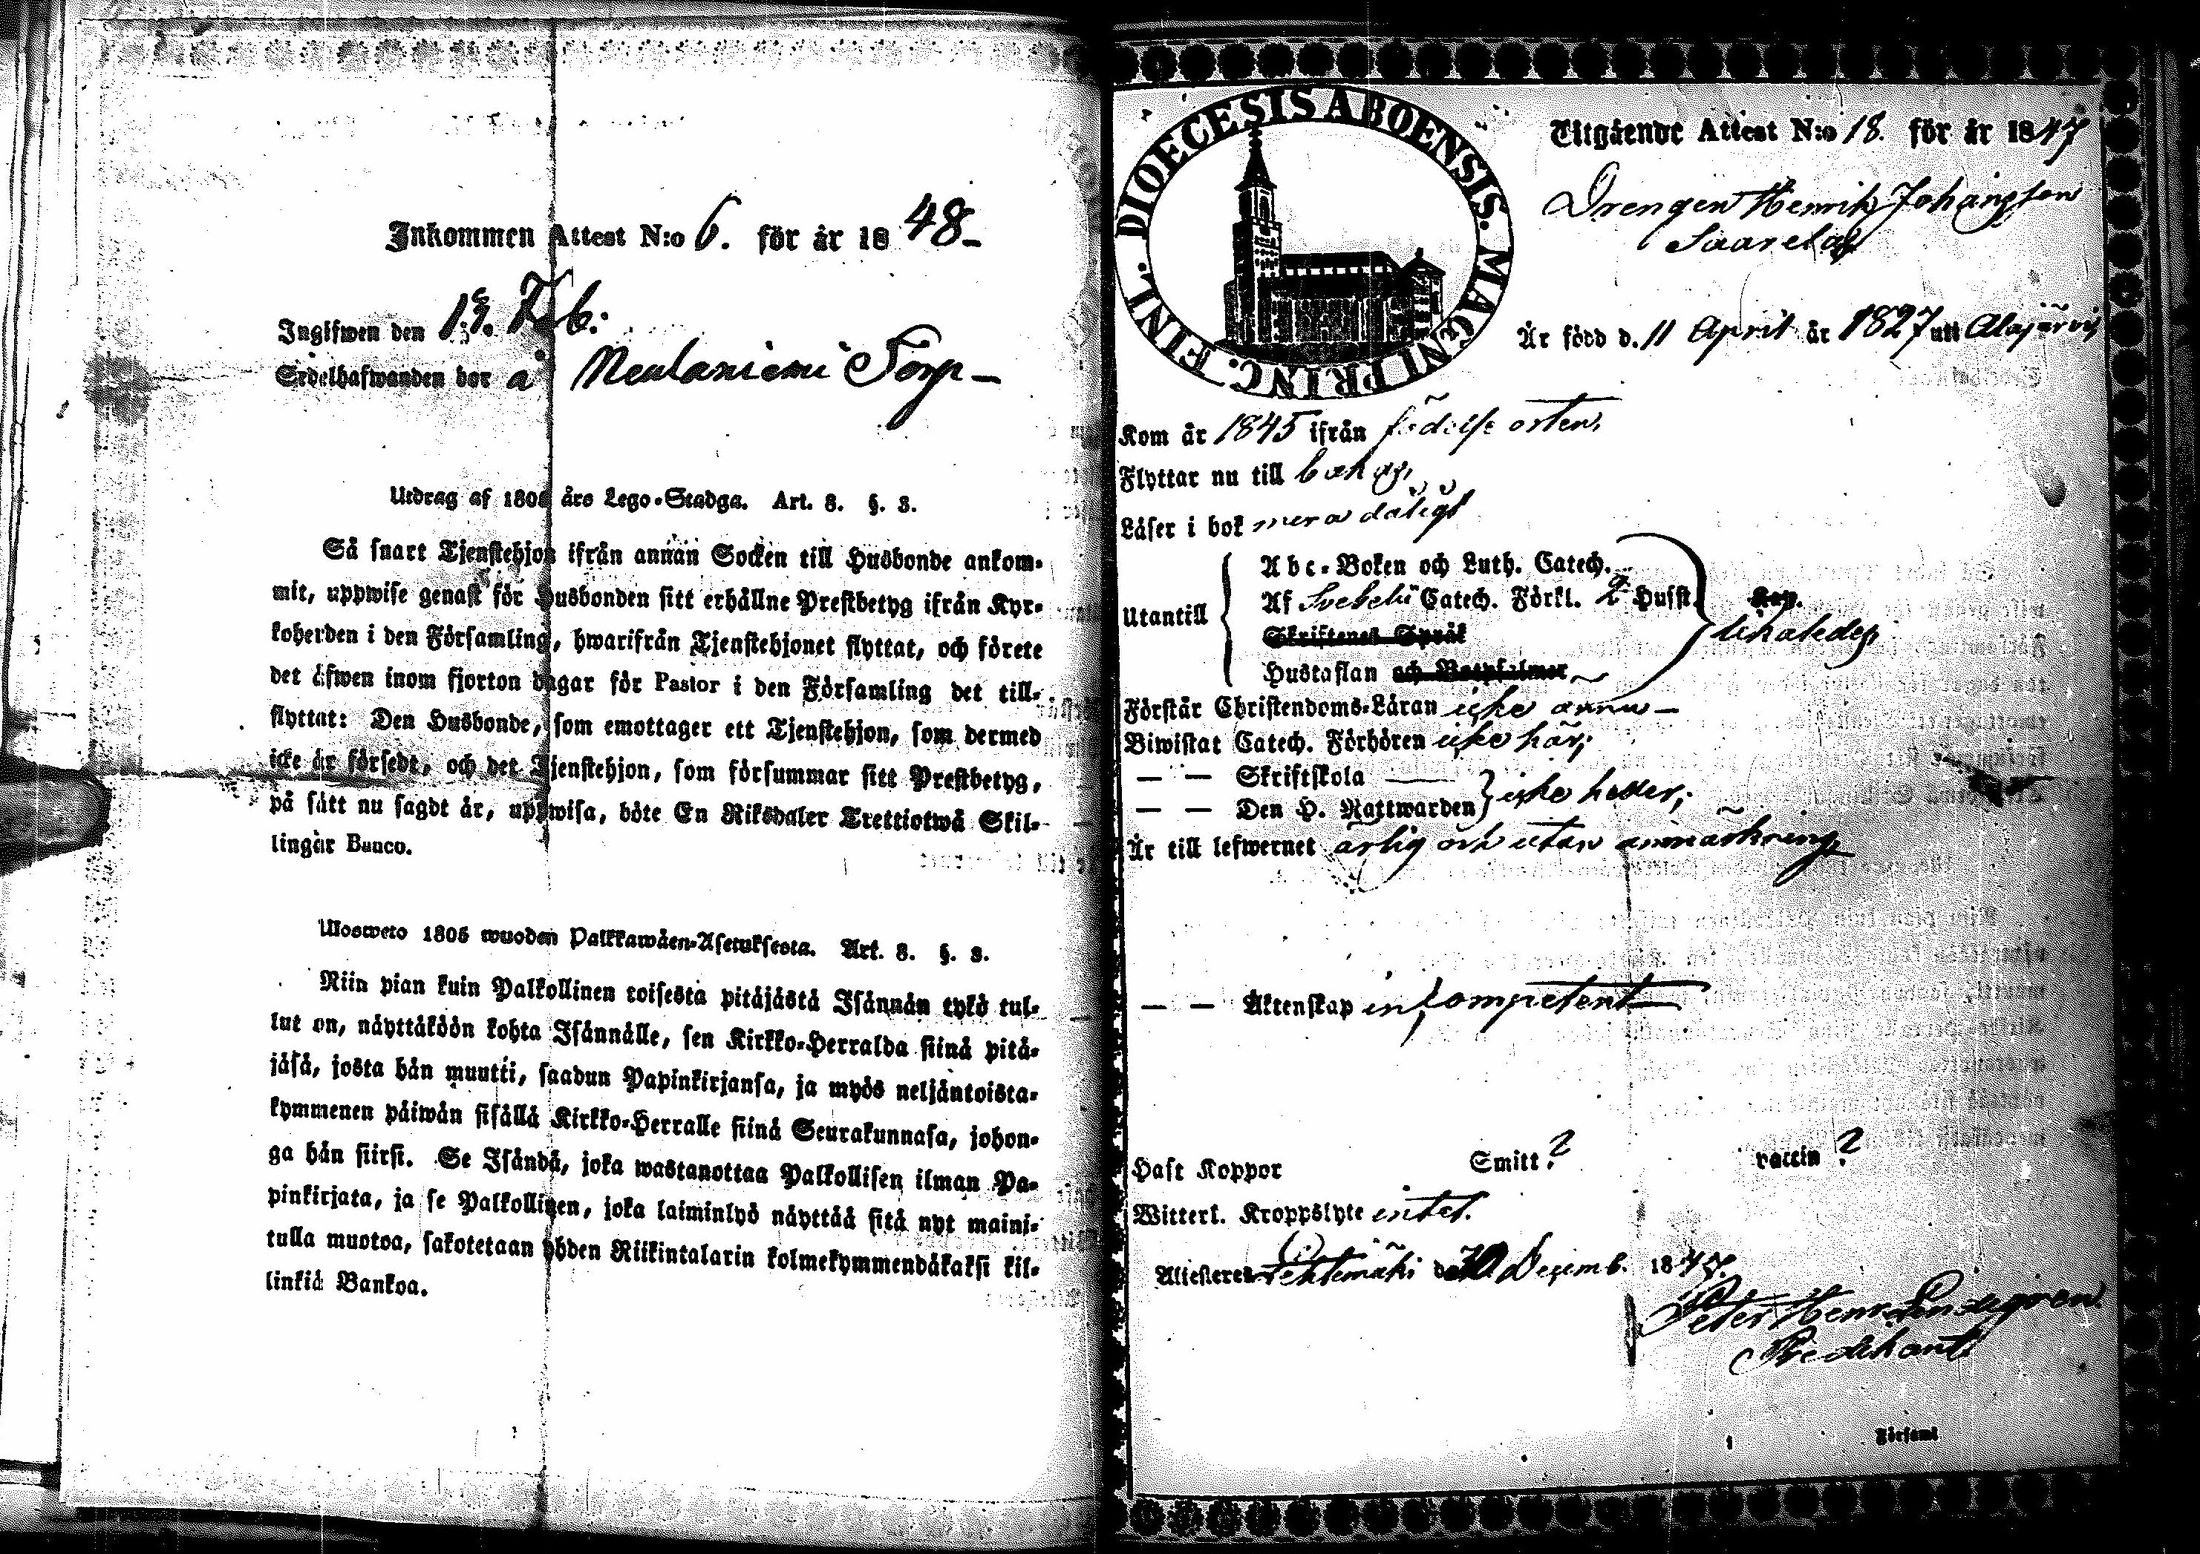 Inkommen Attest N:o 6. för år 18 48-
Ingifwen den 13. Feb:
Sedelhafwanden bor å Neulaniemi Torp-
Utdrag af 1805 års Lego-Stadga. Art. 8. §. 3.
Så snart Tjenstehjon ifrån annan Socken till Husbonde ankom-
mit, uppwise genast för Husbonden sitt erhållne Prestbetyg ifrån Kyr-
koherden i den Församling, hwarifrån Tjenstehjonet flyttat, och förete
det äfwen inom fjorton dagar för Pastor i den Församling det till-
flyttat: Den Husbonde, som emottager ett Tjenstehjon, som dermed
icke är försedt, och det Tjenstehjon, som försummar sitt Prestbetyg,
på sått nu sagdt är, uppwisa, böte En Riksdaler Trettiotwå Skil-
lingar Banco.
Ulosweto 1805 wuoden Palkkawäen-Asetuksesta. Art. 8. §. 3.
Niin pian kuin Palkollinen toisesta pitäjästä Isännän tykö tul-
lut on, näyttäköön kohta Isännälle, sen Kirkko-Herralda siinä pitä-
jäsä, josta hän muutti, saadun Papinkirjansa, ja myös neljäntoista-
kymmenen päiwän sisällä Kirkko-Herralle siinä Seurakunnasa, johon-
ga hän siirsi. Se Isändä, joka wastanottaa Palkollisen ilman Pa-
pinkirjata, ja se Palkollinen, joka laiminlyö näyttää sitä nyt maini-
tulla muotoa, sakotetaan yhden Riikintalarin kolmekymmendäkaksi kil-
linkiä Bankoa.
DIOECESIS ABOENSIS. MAGNI PRINC. FINL.
Utgående Attest N:o 18. för år 1847
Drengen Henrik Johansson
Saarela
Är född d. 11 April år 1827 uti Alajärvi
Kom år 1845 ifrån födelse orten,
Flyttar nu till behag,
Läser i bok mera dåligt
Utantill
Abc-Boken och Luth. Catech.
Af Svebelii Catech. Förkl. 2 Husst. Kap.
Skriftenes Språk
likaledes
Hustaflan och Botpsalmer
Förstår Christendoms-Läran icke ännu -
Biwistat Catech. Förhören icke här;
— — Skriftskola
— — Den H. Nattwarden icke heller;
Är till lefwernet ärlig och utan anmärkning
— — Äktenskap incompetent
Haft Koppor Smitt ? vaccin ?
Witterl. Kroppslyte intet.
Attesterar Lehtimäki d. 30 Decemb. 1847.
Peter Henr. Lindegren
Predikant
Församl